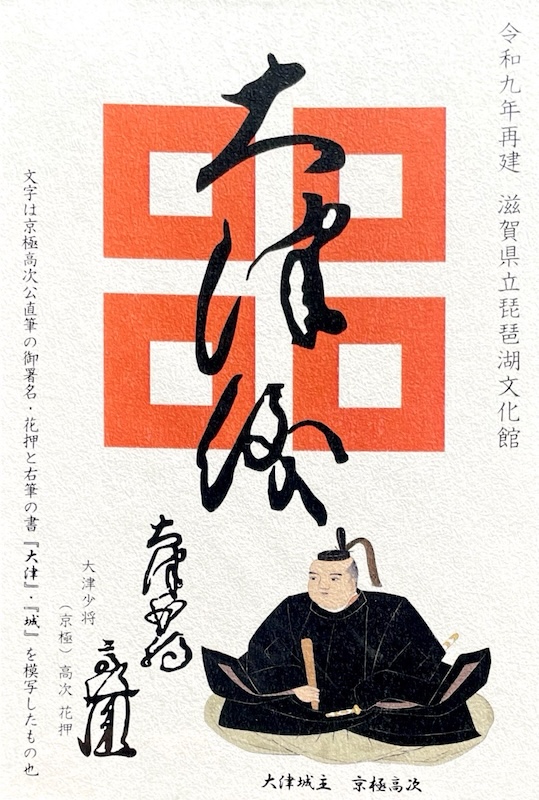 令和九年再建 滋賀県立琵琶湖文化館
大津城
大津少将
高次
大津少将
(京極)高次 花押
文字は京極高次公直筆の御署名・花押と右筆の書『大津』・『城』を模写したもの也
大津城主 京極高次